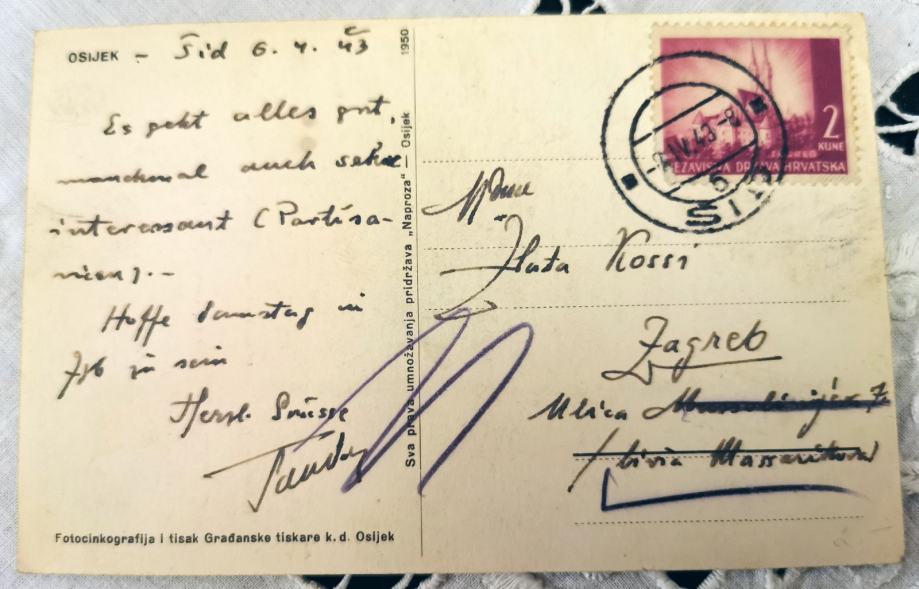 OSIJEK - Šid 6. 4. 43
Es geht alles gut,
manchmal auch sehr
interessant (Partisa-
nien).-
Hoffe Samstag in
Zgb zu sein
Herzl. Grüsse
Sva prava umnožavanja pridržava „Naproza" — Osijek 1950
Fotocinkografija i tisak Građanske tiskare k. d. Osijek
2
KUNE
ZAGREB
NEZAVISNA DRŽAVA HRVATSKA
IV.43-8
ŠID
Zlata Rossi
Zagreb
Ulica